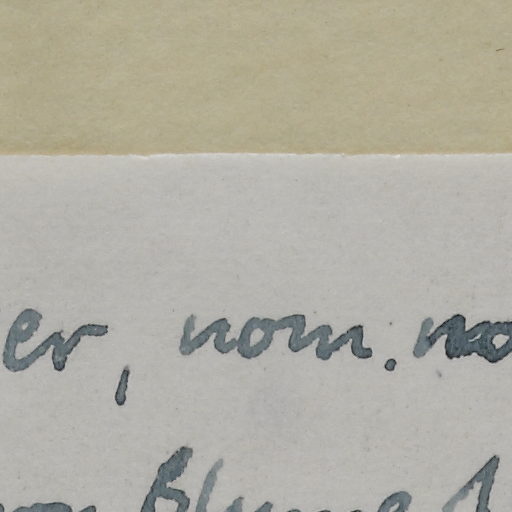 er, nom. no
Blume